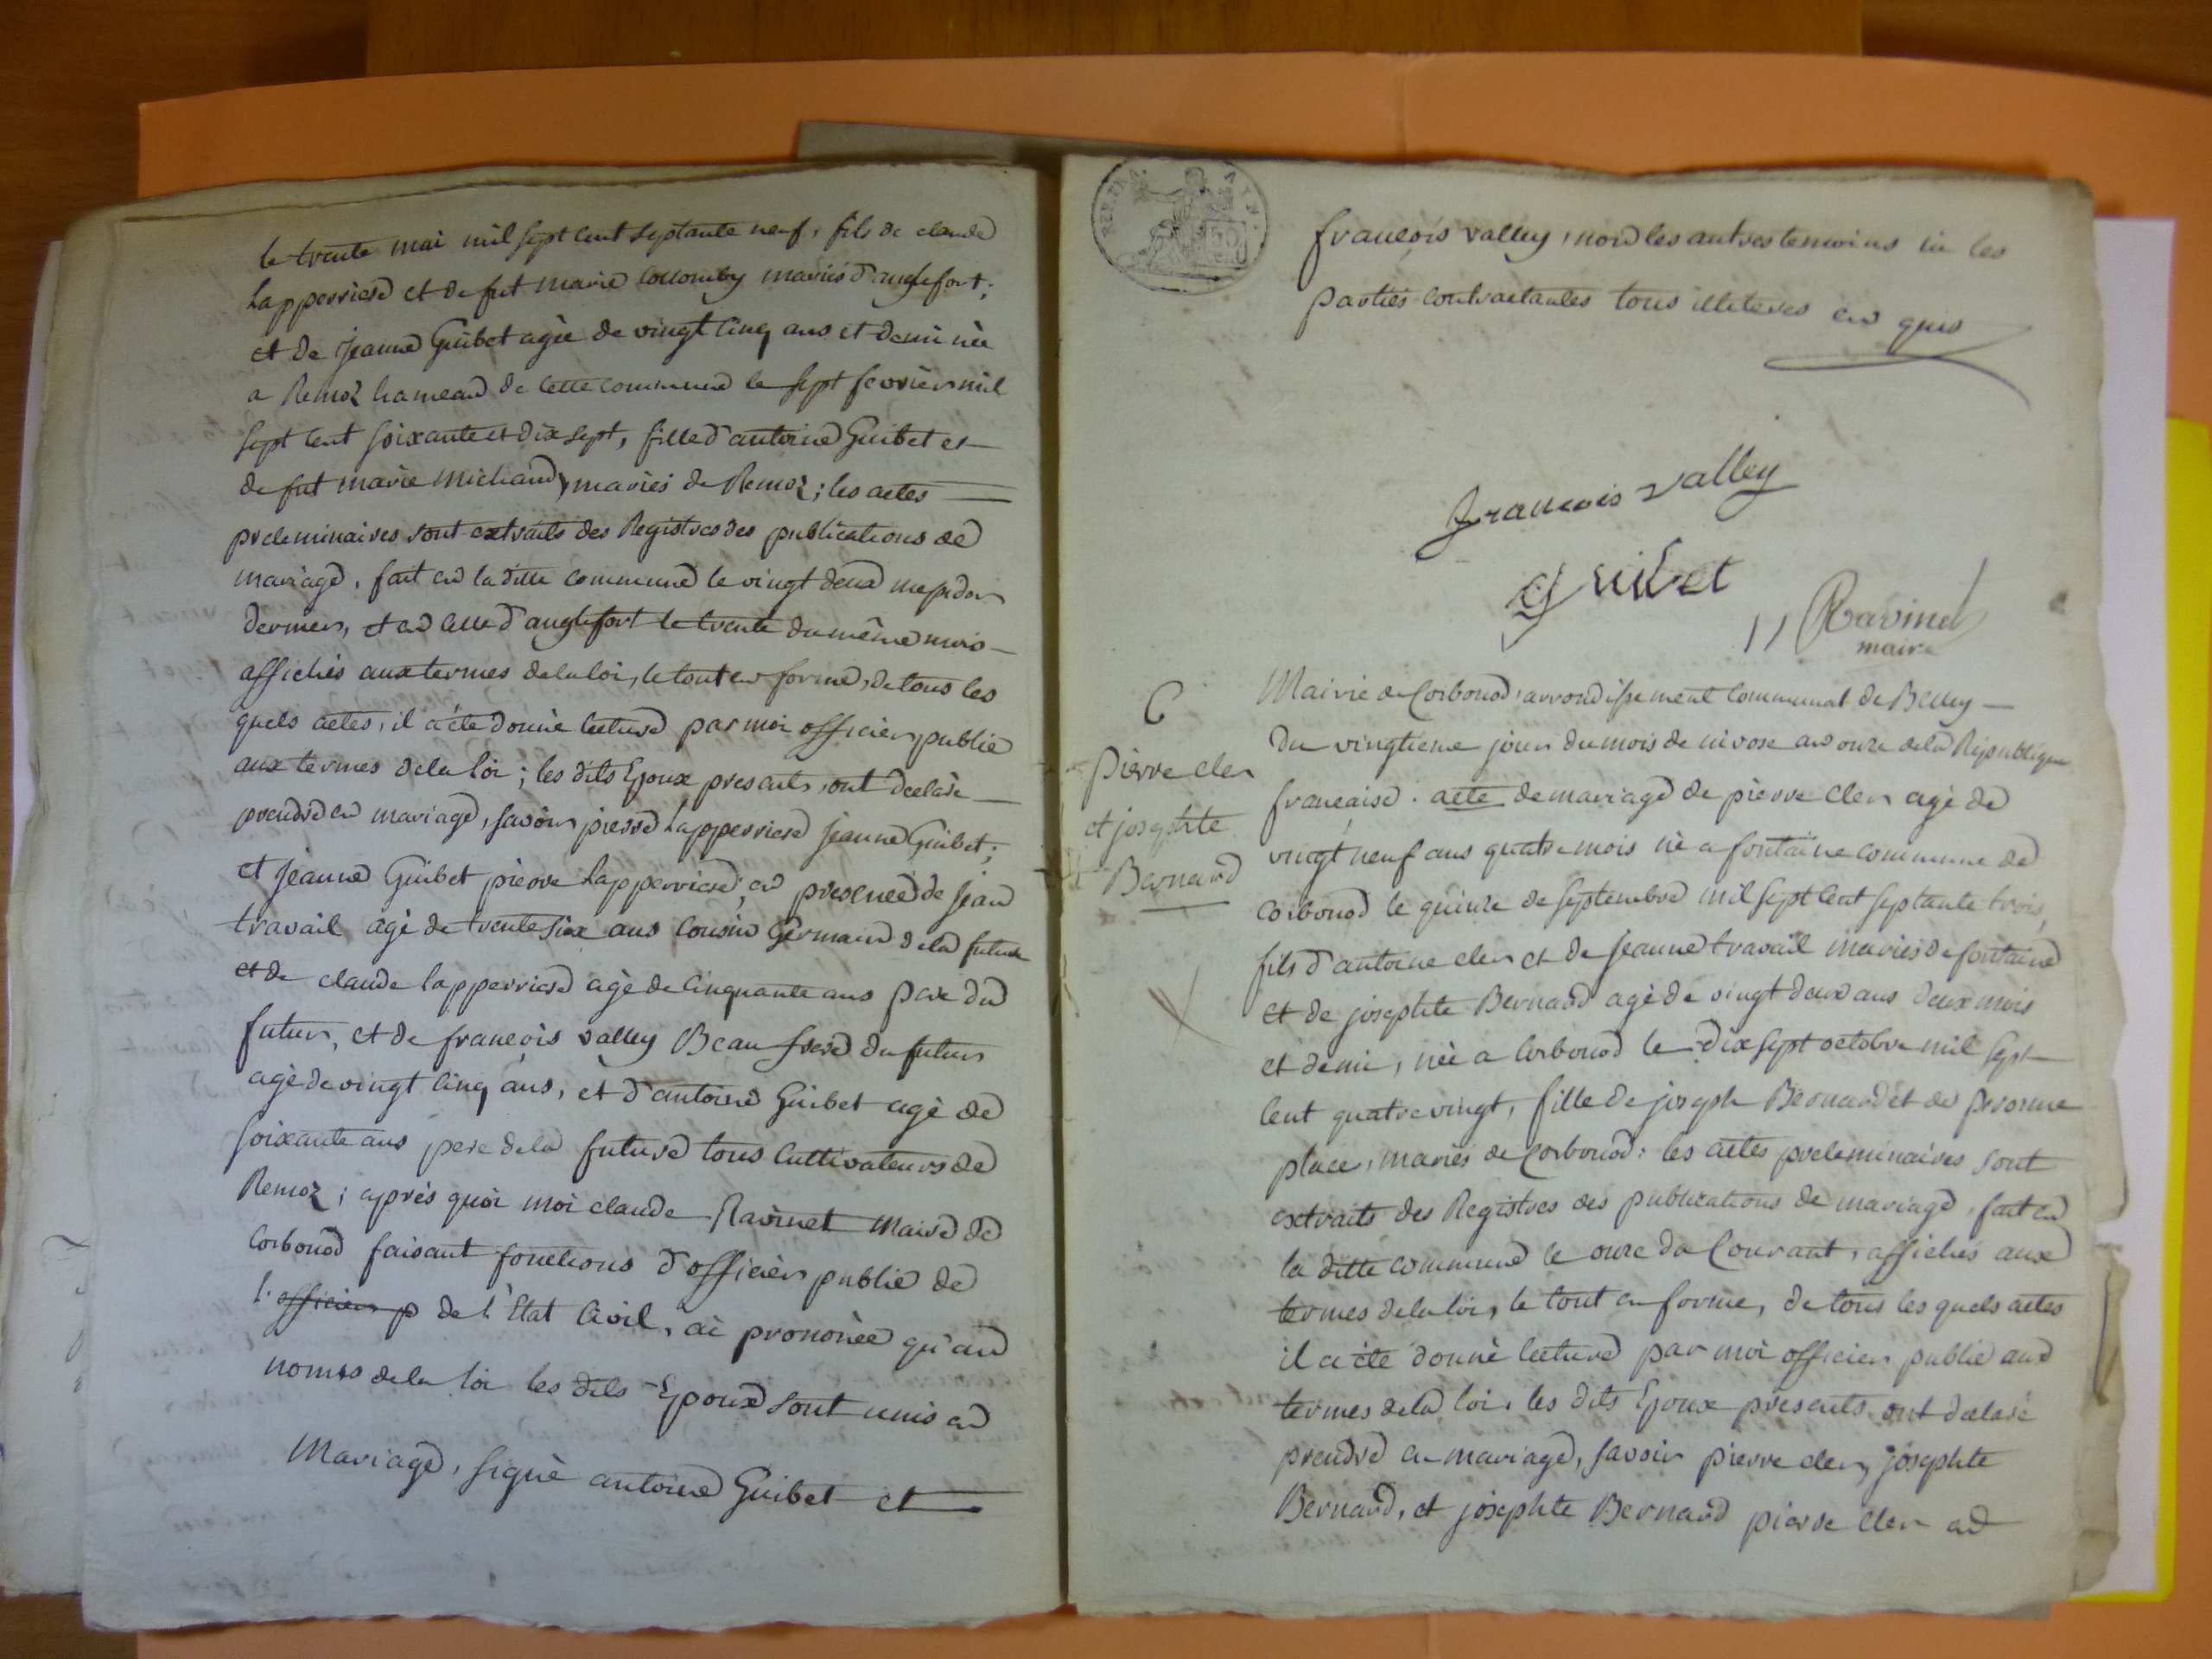 le trente mai mil sept cent septante neuf, fils de claude
Lapperriere et de fut marie collomby mariés d'anglefort;
et de jeanne Guibet agèe de vingt cinq ans et demi nèe
a Remoz hameau de cette commune le sept fevrier mil
sept cent soixante et dix sept, fille d'antoine Guibet et
de fut marie michaud, mariés de Remoz; les actes
preleminaires sont extraits des Registres des publications de
mariage, fait en la ditte commune le vingt deux messidor
dernier, et en celle d'anglefort le trente du même mois
affichés aux termes de la loi, le tout en forme, de tous les
quels actes, il a été donnè lecture par moi officier public
aux termes de la loi; les dits Epoux presents, ont declarè
prendre en mariage, savoir pierre Lapperriere jeanne Guibet;
et jeanne Guibet pierre Lapperriere; en presence de jean
travail agè de trente six ans cousin Germain de la future
et de claude lapperriere agè de cinquante ans pere du
futur, et de françois valley Beau frere du futur
agè de vingt cinq ans, et d'antoine Guibet agè de
soixante ans pere de la future tous cultivateurs de
Remoz; après quoi moi claude Ravinet Maire de
Corbonod faisant fonctions d'officier public de
l'officier p de l'Etat Civil, ai prononcè qu'au
noms de la loi les dits Epoux sont unis en
Mariage, signè antoine Guibet et
françois valley, non les autres temoins ni les
parties contractantes tous illiteres en quis
francois valley
Guibet
Ravinet
maire
C
pierre cler
et josephte
Bernard
Mairie de Corbonod, arrondissement Communal de Belley
Du vingtieme jour du mois de nivose an onze de la République
française. acte de mariage de pierre cler agè de
vingt neuf ans quatre mois nè a fontaine commune de
corbonod le quinze de septembre mil sept cent septante trois,
fils d'antoine cler et de jeanne travail mariés de fontaine
et de josephte Bernard agè de vingt deux ans deux mois
et demi, nèe a Corbonod le dix sept octobre mil sept
cent quatre vingt, fille de joseph Bernard et de
place, mariès de Corbonod: les actes preleminaires sont
extraits des Registres des publications de mariage, fait en
la ditte commune le onze du Courant, affichès aux
termes de la loi, le tout en forme, de tous les quels actes
il a ète donnè lecture par moi officier public aux
termes de la loi, les dits Epoux presents ont declarè
prendre en mariage, savoir pierre cler, josephte
Bernard, et josephte Bernard pierre cler en